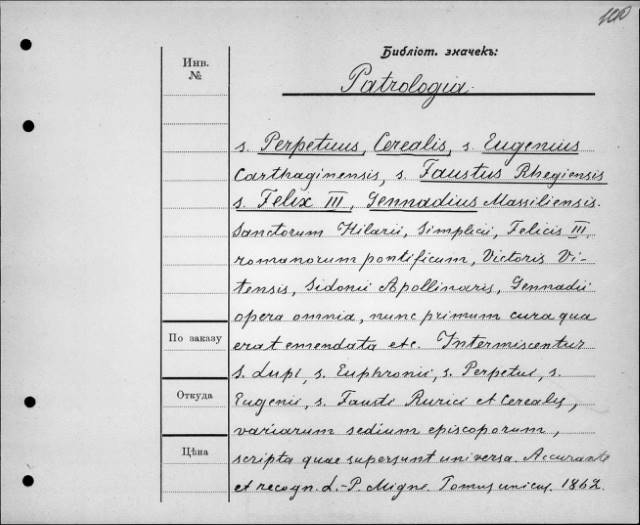 Библіот. значекъ:
Инв.
№
Patrologia
s. Perpetuus, Cerealis, s. Eugenius
Carthaginensis, s. Faustus Rhegiensis
s. Felix III, Gennadius Massiliensis.
Sanctorum Hilarii, Simplicii, Felicis III,
romanorum pontificum, Victoris Vi-
tensis, Sidonii Apollinaris, Gennadii
opera omnia, nunc primum cura qua
По заказу
erat emendata etc. Intermiscentur
S. Lupi, s. Euphronii, s. Perpetui, s.
Откуда
Eugenii, s. Fausti Rurici et Cerealis,
variarum sedium episcoporum,
Цѣна
scripta quae supersunt universa. Accurante
et recogn. L.-P. Migne. Tomus unicus. 1862.